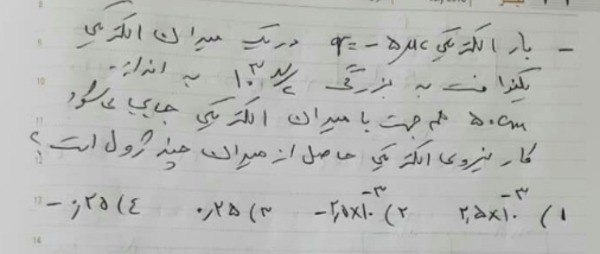 - بار الکتریکی q=-۵μc در یک میدان الکتریکی
یکنواخت به بزرگی ۱۰^۳ N/C به اندازه
۵۰cm هم جهت با میدان الکتریکی جابجا می‌شود
کار نیروی الکتریکی حاصل از میدان چند ژول است؟
۱) ۲,۵×۱۰^-۳ ۲) -۲,۵×۱۰^-۳ ۳) ۰,۲۵ ۴) -۰,۲۵